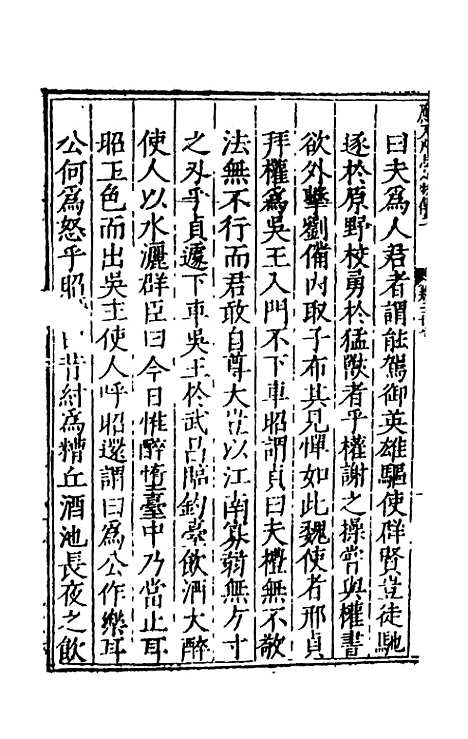 曰夫爲人君者謂能駕御英雄驅使群賢豈徒馳
逐於原野校勇於猛獸者乎權謝之操嘗與權書
欲外擊劉備內取子布其見憚如此魏使者邢貞
拜權爲吳王入門不下車昭謂貞曰夫禮無不敬
法無不行而君敢自尊大豈以江南寡弱無方寸
之刃乎貞遽下車吳王於武昌臨釣臺飲酒大醉
使人以水灑群臣曰今日惟醉墮臺中乃當止耳
昭正色而出吳主使人呼昭還謂曰爲公作樂耳
公何爲怒乎昭昔紂爲糟丘酒池長夜之飲